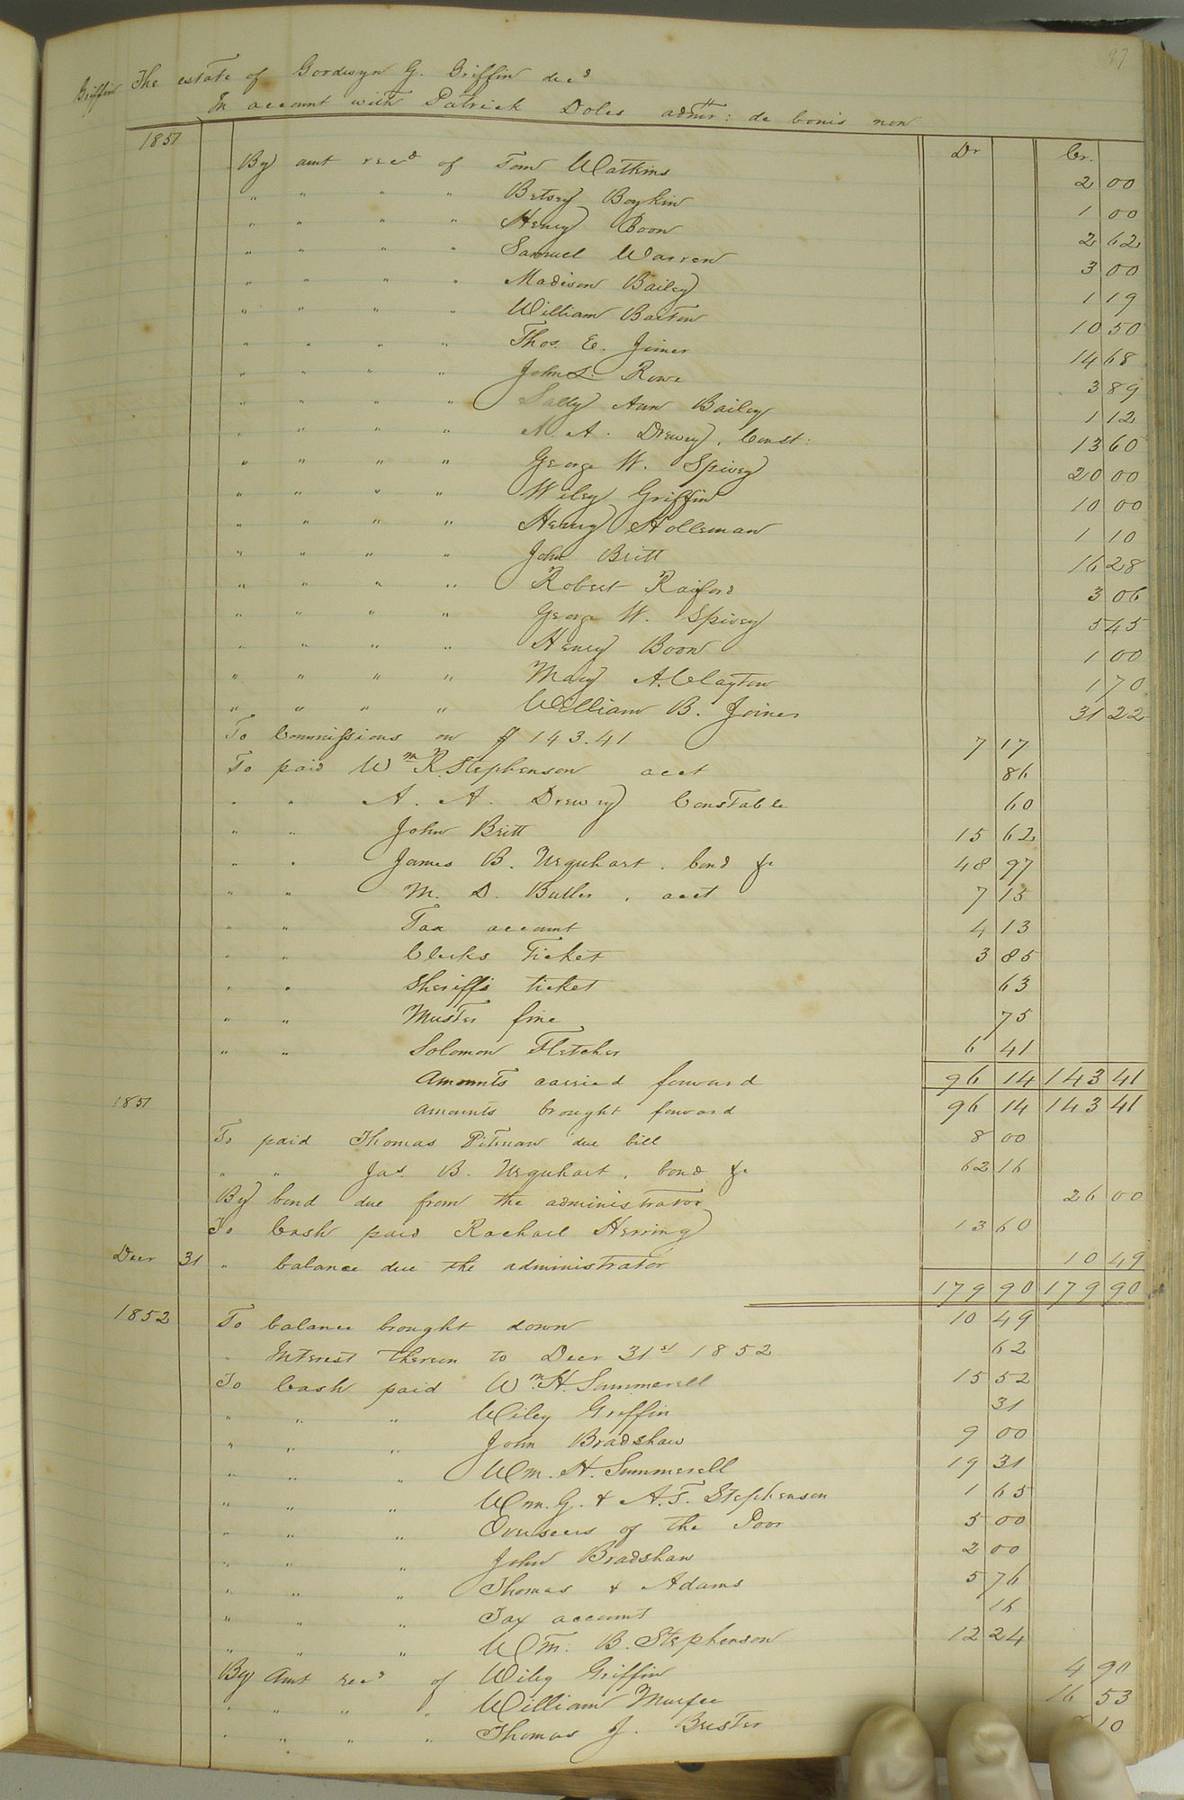 87
Griffin The estate of Gordwyn G. Griffin decd
In account with Patrick Doles admr: de bonis non
1851 Dr Cr.
By amt recd of Tom Watkins 2 00
" " " " Betsey Boykin 1 00
" " " " Henry Boon 2 62
" " " " Samuel Warren 3 00
" " " " Madison Bailey 1 19
" " " " William Barton 10 50
" " " " Thos. E. Joiner 14 68
" " " " John S. Rowe 3 89
" " " " Sally Ann Bailey 1 12
" " " " A. A. Drewry, Const: 13 60
" " " " George W. Spivey 20 00
" " " " Wiley Griffin 10 00
" " " " Henry Holleman 1 10
" " " " John Britt 16 28
" " " " Robert Raiford 3 06
" " " " George W. Spivey 5 45
" " " " Henry Boon 1 00
" " " " Mary A. Clayton 1 70
" " " " William B. Joiner 31 22
To Commissions on $143.41 7 17
To paid Wm R. Stephenson acct 86
" " A. A. Drewry Constable 60
" " John Britt 15 62
" " James B. Urquhart. bond &c 48 97
" " M. D. Butler, acct 7 15
" " Tax account 4 13
" " Clerks Ticket 3 85
" " Sheriffs ticket 63
" " Muster fine 75
" " Solomon Fletcher 6 41
Amounts carried forward 96 14 143 41
1851 Amounts brought forward 96 14 143 41
To paid Thomas Pitman due bill 8 00
" " Jas. B. Urquhart. bond &c 62 16
By bond due from the administrator 26 00
To Cash paid Rachael Herring 13 60
Decr 31 " balance due the administrator 10 49
179 90 179 90
1852 To balance brought down 10 49
" Interest thereon to Decr 31st 1852 62
To Cash paid Wm H. Summerell 15 52
" " " Wiley Griffin 31
" " " John Bradshaw 9 00
" " " Wm. H. Summerell 19 31
" " " Wm. G. & A. F. Stephenson 1 65
" " " Overseers of the Poor 5 00
" " " John Bradshaw 2 00
" " " Thomas & Adams 5 76
" " " Tax account 16
" " " Wm. B. Stephenson 12 24
By Amt recd of Wiley Griffin 4 90
" " " " William Murfee 16 53
" " " " Thomas J. Brister 10